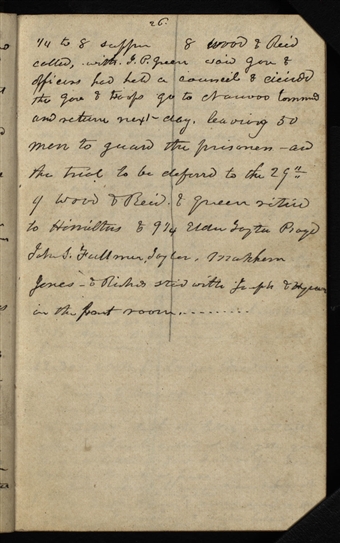 26.
1/4 to 8 supper 8 Wood & Reid
called, with J. P. Green said Gov &
officers had held a council & decided
the Gov & troops go to Nauvoo tomorrow
and return next day. leaving 50
men to guard the prisoners – and
the trial to be deferred to the 29th
9 Wood & Reid. & Green retired
to Hamiltons & 9 1/4 Elder Taylor Prayd
John S. Fullmer, Taylor, Markham
Jones – & Richds staid with Joseph & Hyrum
in the front room.........